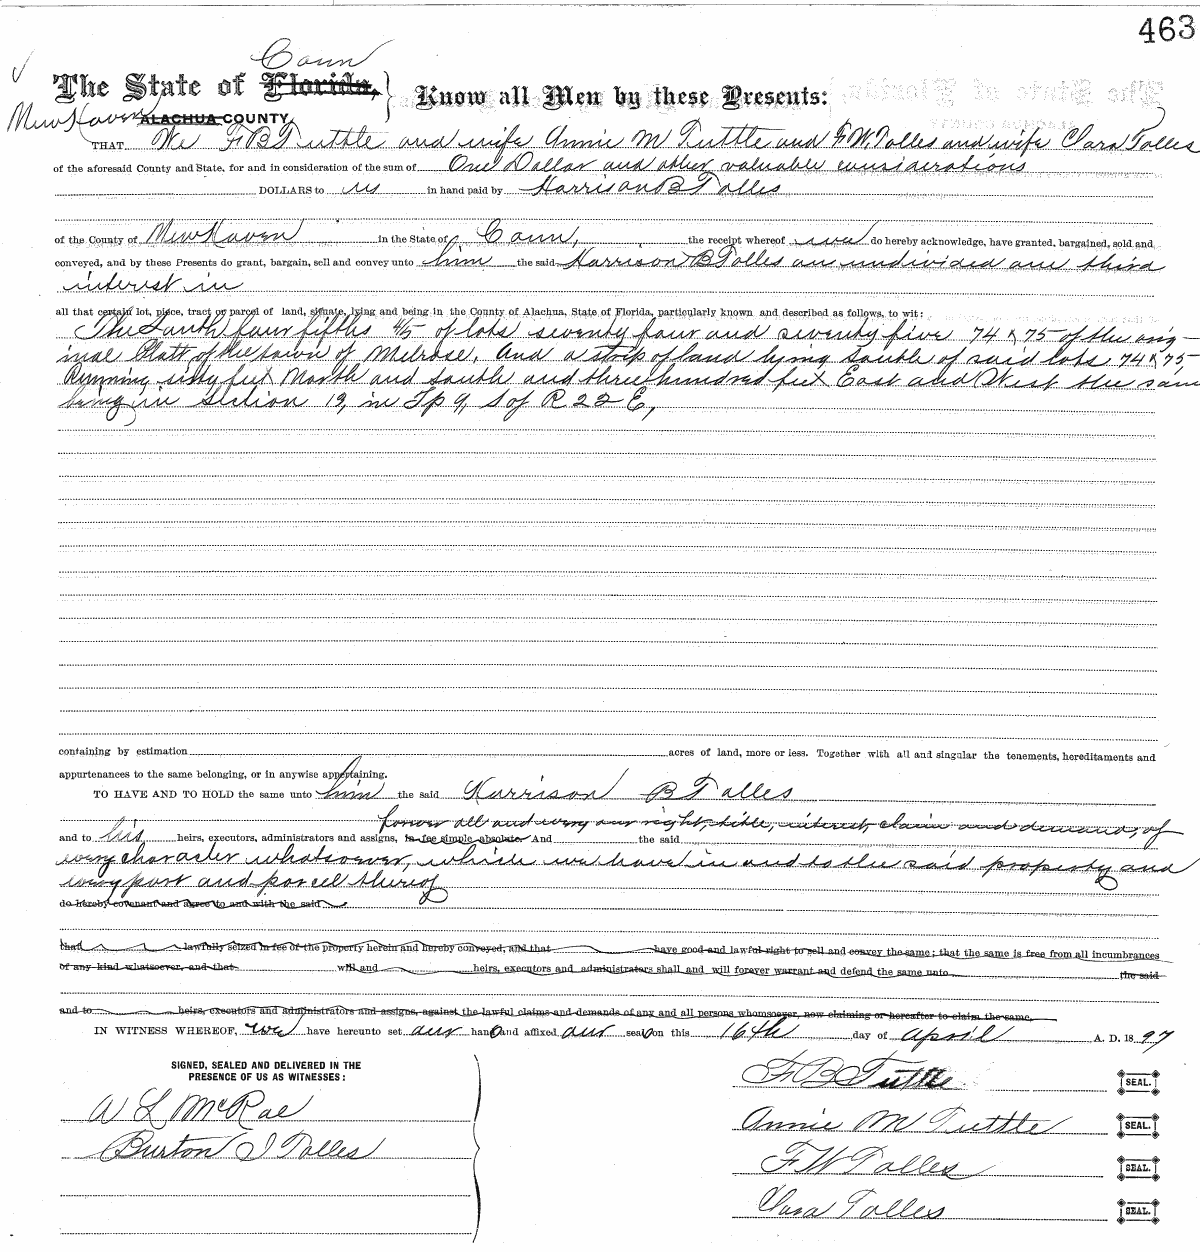 463
Conn
The State of Florida, } Know all Men by these Presents:
New Haven ALACHUA COUNTY,
THAT We F B Tuttle and wife Annie M Tuttle and F. W. Tolles and wife Clara Tolles
of the aforesaid County and State, for and in consideration of the sum of One Dollar and other valuable considerations
DOLLARS to us in hand paid by Harrison B Tolles
of the County of New Haven in the State of Conn, the receipt whereof we do hereby acknowledge, have granted, bargained, sold and
conveyed, and by these Presents do grant, bargain, sell and convey unto him the said Harrison B Tolles an undivided one third
interest in
all that certain lot, piece, tract or parcel of land, situate, lying and being in the County of Alachua, State of Florida, particularly known and described as follows, to wit:
The South four fifths 4/5 of lots seventy four and seventy five 74 & 75 of the orig-
inal Platt of the town of Melrose, And a strip of land lying South of said lots 74 & 75
Running sixty feet North and South and three hundred feet East and West the same
being in Section 19, in Tp 9, S of R 22 E,
containing by estimation acres of land, more or less. Together with all and singular the tenements, hereditaments and
appurtenances to the same belonging, or in anywise appertaining.
TO HAVE AND TO HOLD the same unto him the said Harrison B Tolles
forever all and every our right, title, interest, claim and demand, of
and to his heirs, executors, administrators and assigns, in fee simple absolute. And the said
every character whatsoever, which we have in and to the said property and
every part and parcel thereof
do hereby covenant and agree to and with the said
that lawfully seized in fee of the property herein and hereby conveyed, and that have good and lawful right to sell and convey the same; that the same is free from all incumbrances
of any kind whatsoever, and that will and heirs, executors and administrators shall and will forever warrant and defend the same unto the said
and to heirs, executors and administrators and assigns, against the lawful claims and demands of any and all persons whomsoever, now claiming or hereafter to claim the same.
IN WITNESS WHEREOF, we have hereunto set our hand and affixed our seal on this 16th day of April A. D. 1897
SIGNED, SEALED AND DELIVERED IN THE
PRESENCE OF US AS WITNESSES:
F B Tuttle SEAL.
A L McRae
Annie M Tuttle SEAL.
Burton I Tolles
F W Tolles SEAL.
Clara Tolles SEAL.